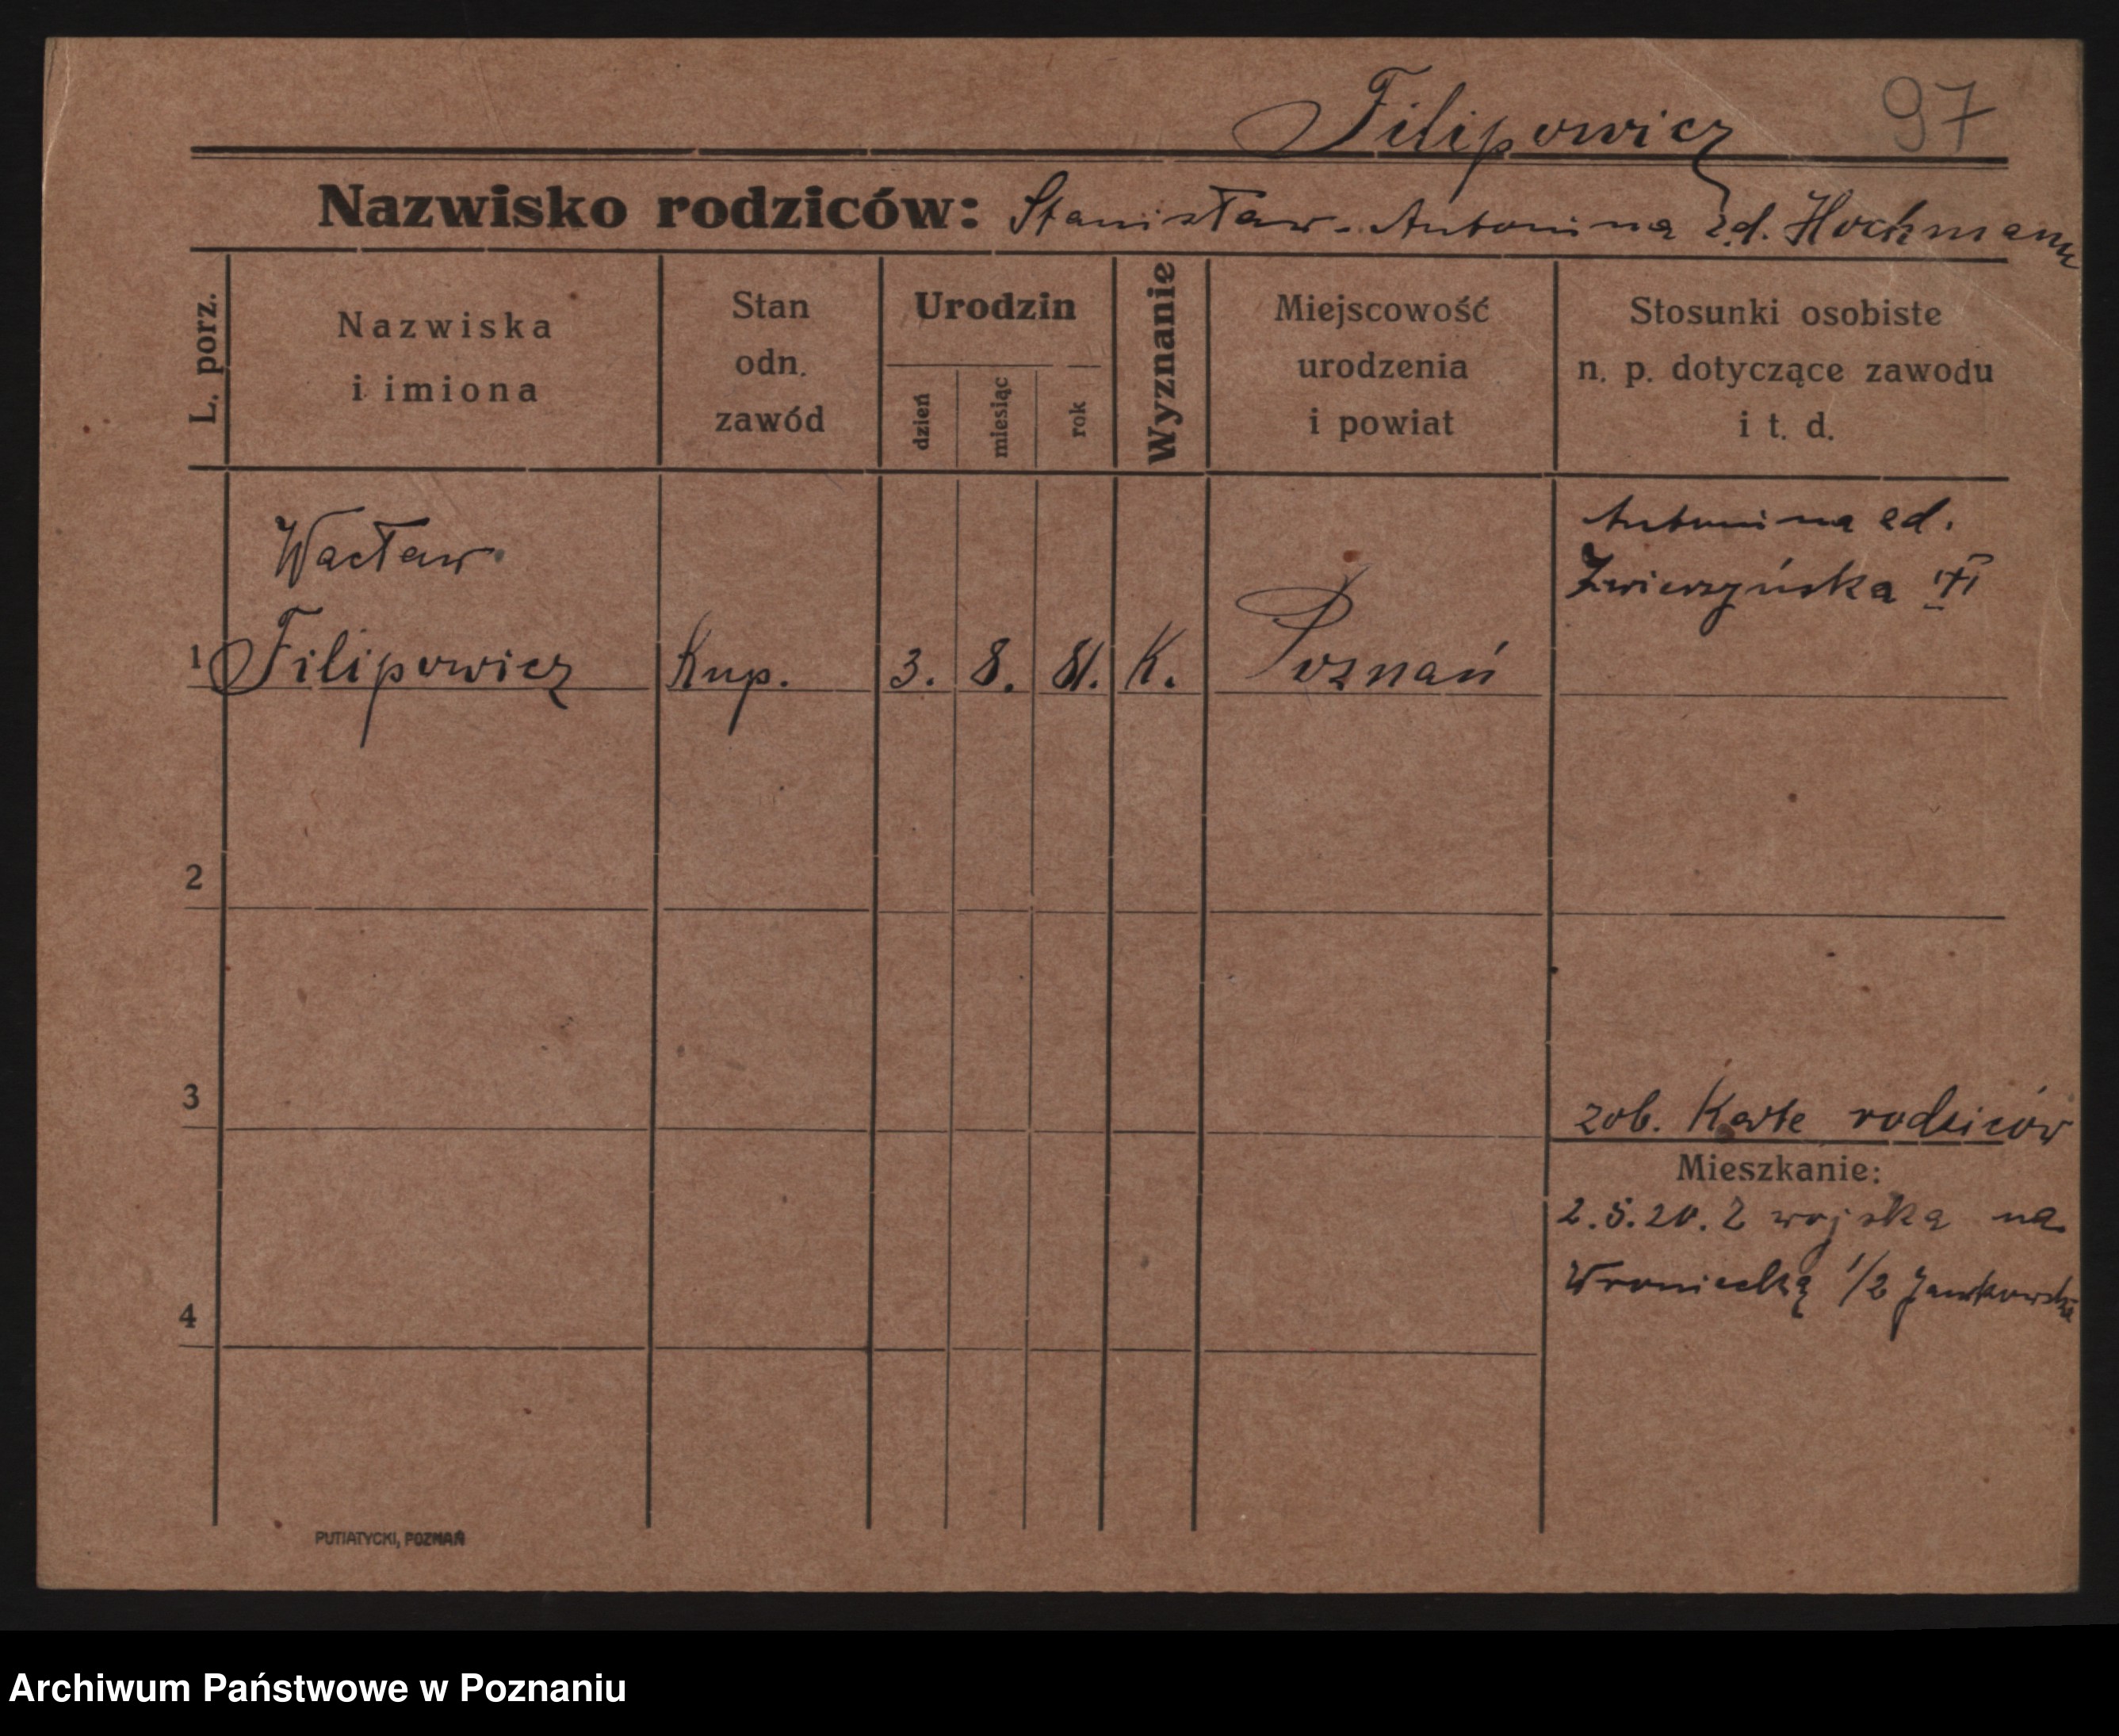 Filipowicz 97
Nazwisko rodziców: Stanisław - Antonina zd. Hochmann
L. porz.
Nazwiska
i imiona
Stan
odn.
zawód
Urodzin
dzień
miesiąc
rok
Wyznanie
Miejscowość
urodzenia
i powiat
Stosunki osobiste
n. p. dotyczące zawodu
i t. d.
Wacław
1 Filipowicz Kup. 3. 8. 81. K. Poznań
Antonina zd.
Zwierzyńska
2
3
zob. Karte rodziców
Mieszkanie:
2.5.20. Z wojska na
Wroniecką 1/2
4
PUTIATYCKI, POZNAŃ
Archiwum Państwowe w Poznaniu